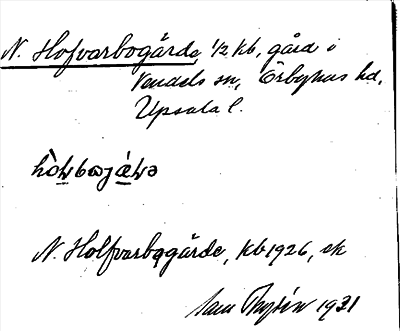 N. Hofvarbogärde, 1/2 kb, gård i
Vendels sn, Örbyhus hd,
Upsala l.
N. Holfvarbogärde, kb 1926, ek
1931